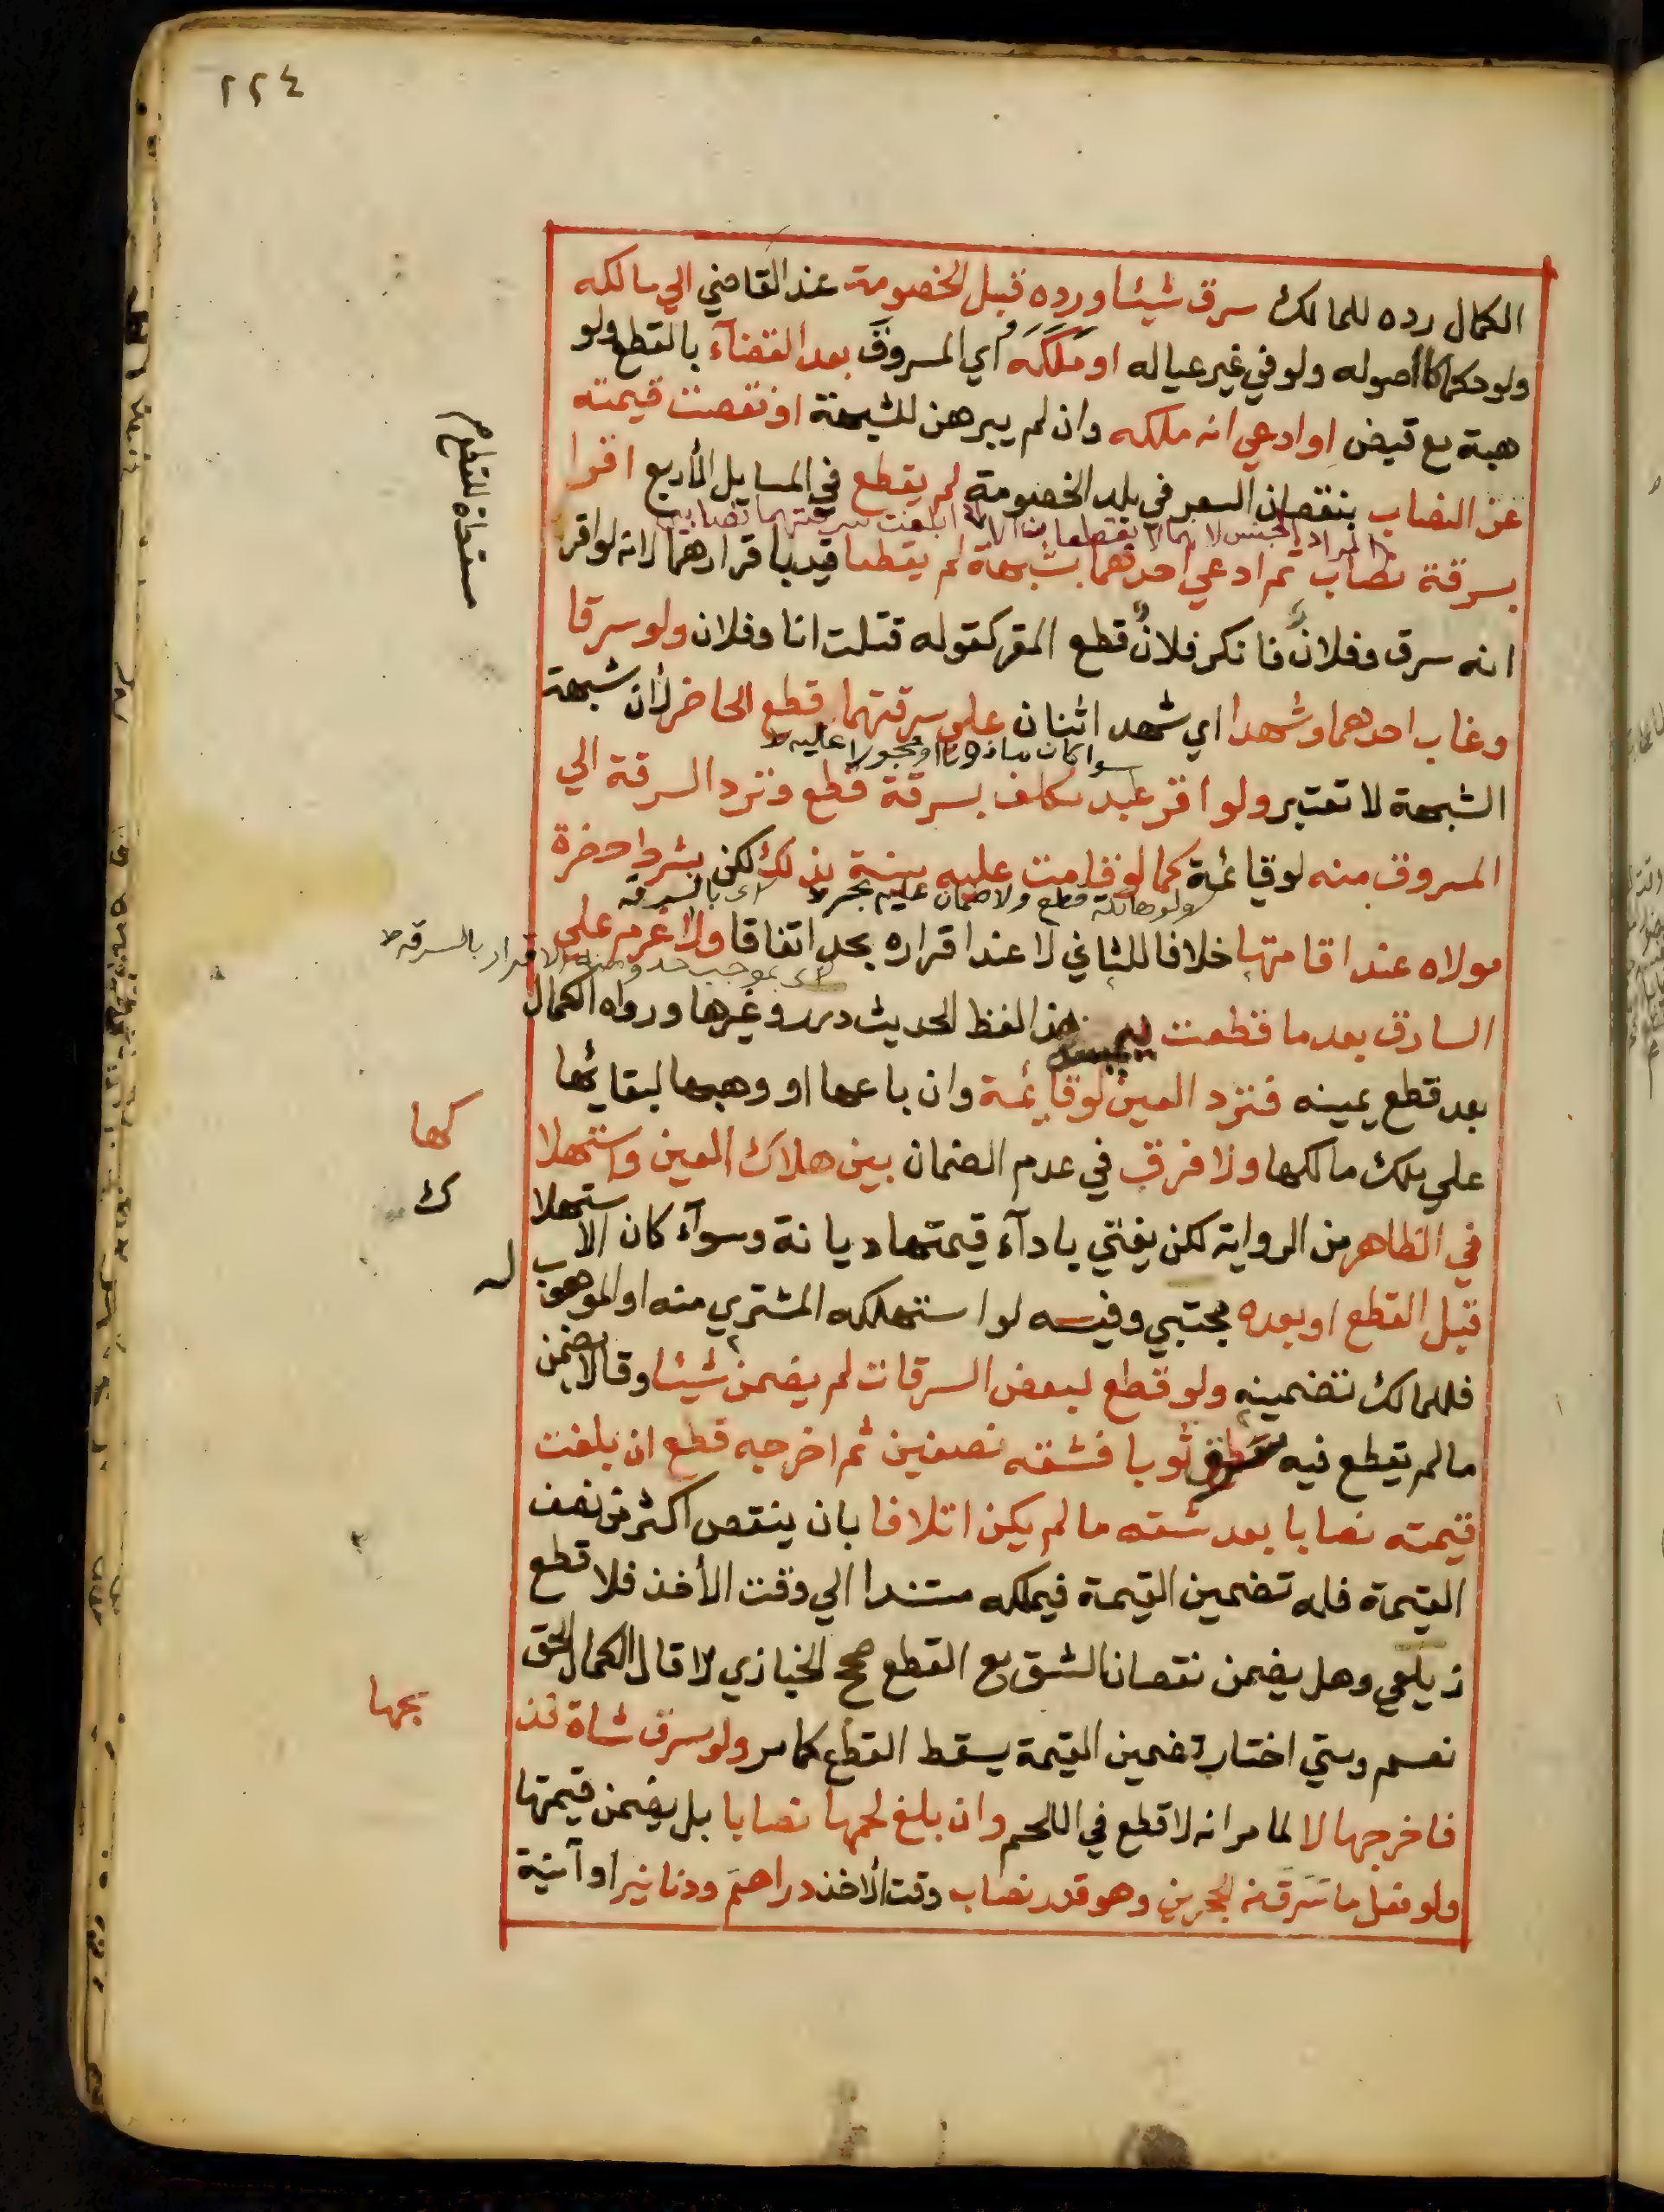 ٢٢٤
الكمال رده للمالك سرق شيئا ورده قبل الخصومة عند القاضي الي مالكه
ولو حكما كاصوله ولو في غير عياله او ملكه اي المسروق بعد القضآء بالقطع ولو
هبة مع قبض او ادعي انه ملكه وان لم يبرهن للشبهة او نقصت قيمته
عن النصاب بنقصان السعر في بلد الخصومة لم يقطع في المسايل الأربع اقرا
بسرقة نصاب ثم ادعي احدهما شبهة لم يقطعا قيد باقرارهما لانه لو اقر
انه سرق وفلان فانكر فلان قطع المقر كقوله قتلت انا وفلان ولو سرقا
وغاب احدهما وشهدا اي شهد اثنان علي سرقتهما قطع الحاضر لأن شبهة
سوا كان ماذونا او محجورا عليه ط
الشبهة لا تعتبر ولو اقر عبد مكلف بسرقة قطع وترد السرقة الي
المسروق منه لو قائمة كما لو قامت عليه بينة بذلك لكن بشرط حضرة
ولو هالكة قطع ولا ضمان عليه بحر ط
اي بالسرقه
مولاه عند اقامتها خلافا للثاني لا عند اقراره بحد اتفاقا ولا غرم علي
اي بموجب حد ومنه الاقرار بالسرقه ط
السارق بعد ما قطعت هذا لفظ الحديث درر وغيرها ورواه الكمال
بعد قطع يمينه فترد العين لو قائمة وان باعها او وهبها لبقائها
علي ملك مالكها ولا فرق في عدم الضمان بين هلاك العين واستهلا
كها
في الظاهر من الرواية لكن يفتي بادآء قيمتها ديانة وسوآء كان الاستهلا
ك
قبل القطع او بعده مجتبي وفيه لو استهلكه المشتري منه او الموهوب
له
فللمالك تضمينه ولو قطع لبعض السرقات لم يضمن شيئا وقالا يضمن
ما لم يقطع فيه سرق ثوبا فشقه نصفين ثم اخرجه قطع ان بلغت
قيمته نصابا بعد شقه ما لم يكن اتلافا بان ينقص اكثر من نصف
القيمة فله تضمين القيمة فيملكه مستندا الي وقت الأخذ فلا قطع
زيلعي وهل يضمن نقصان الشق مع القطع صحح الخبازي لا قال الكمال الحق
نعم ومتي اختار تضمين القيمة يسقط القطع كما مر ولو سرق شاة فذ
بحها
فاخرجها لا لما مر انه لا قطع في اللحم وان بلغ لحمها نصابا بل يضمن قيمتها
ولو فعل ما سرق من الحجرين وهو قدر نصاب وقت الأخذ دراهم ودنانير او آنية
مسقطاة للقطع